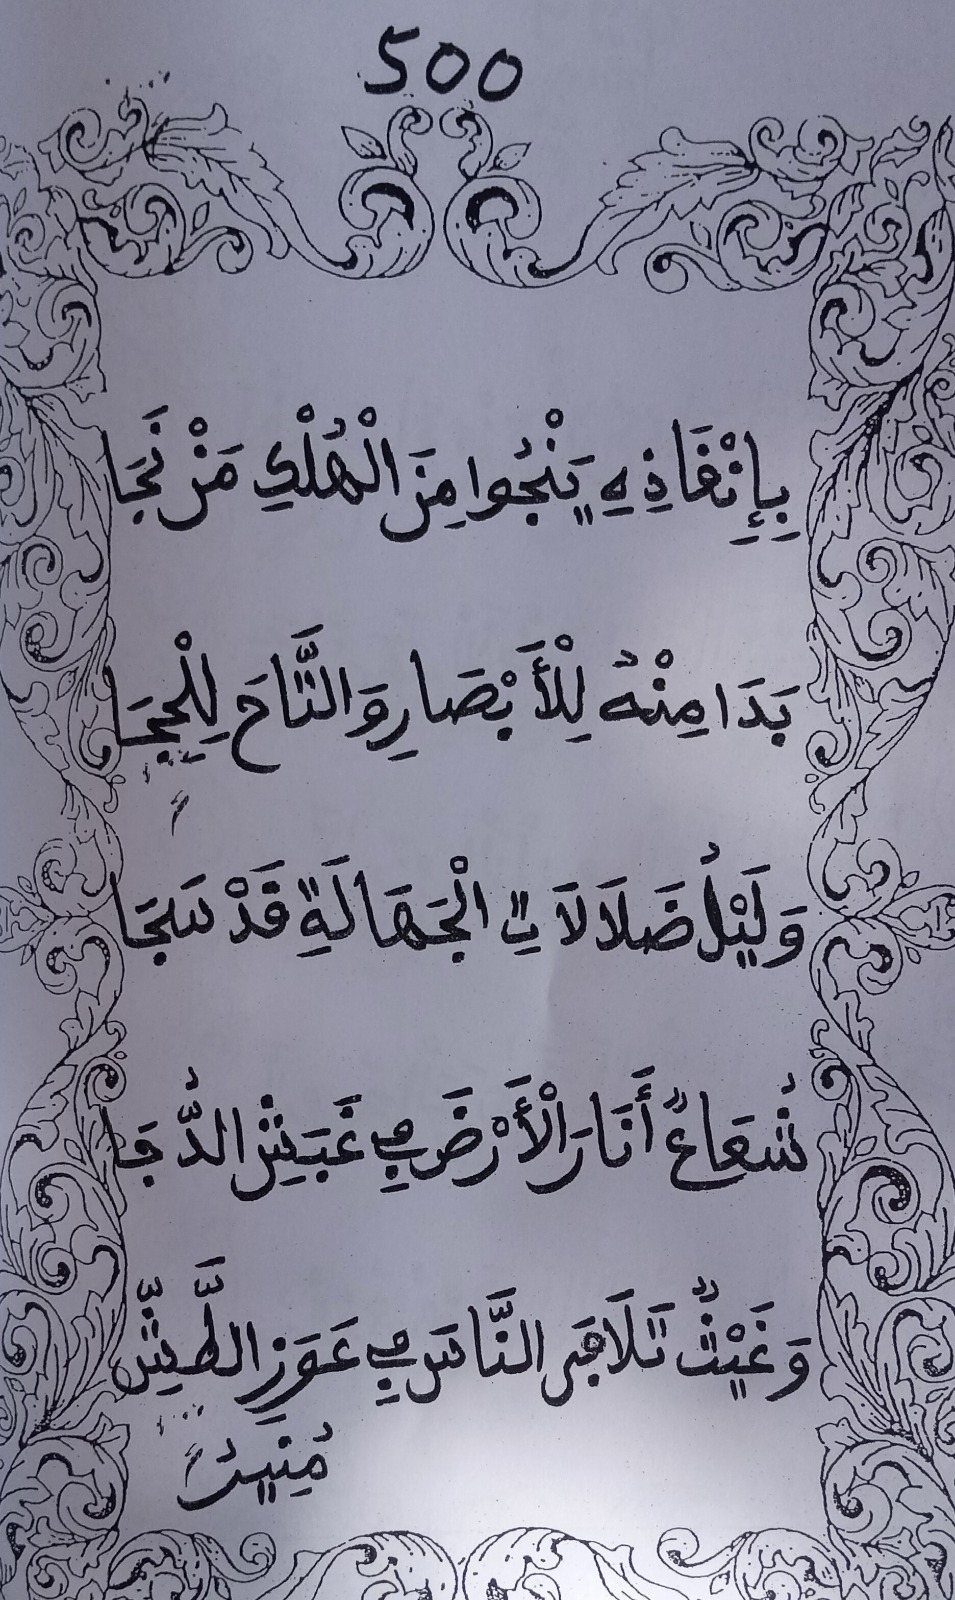 500
بِإِنْفَاذِهِ يَنْجُوا مِنَ الْهُلْكِ مَنْ نَجَا
بَدَا مِنْهُ لِلْأَبْصَارِ وَالْتَاحَ لِلْحِجَا
وَلَيْلُ ضَلَالَاتِ الْجَهَالَةِ قَدْ سَجَا
شُعَاعٌ أَنَارَ الْأَرْضَ فِي غَبَشِ الدُّجَا
وَغَيْثٌ تَلَافَى النَّاسَ فِي عَوَزِ الطَّشِّ
مُنِيتُ